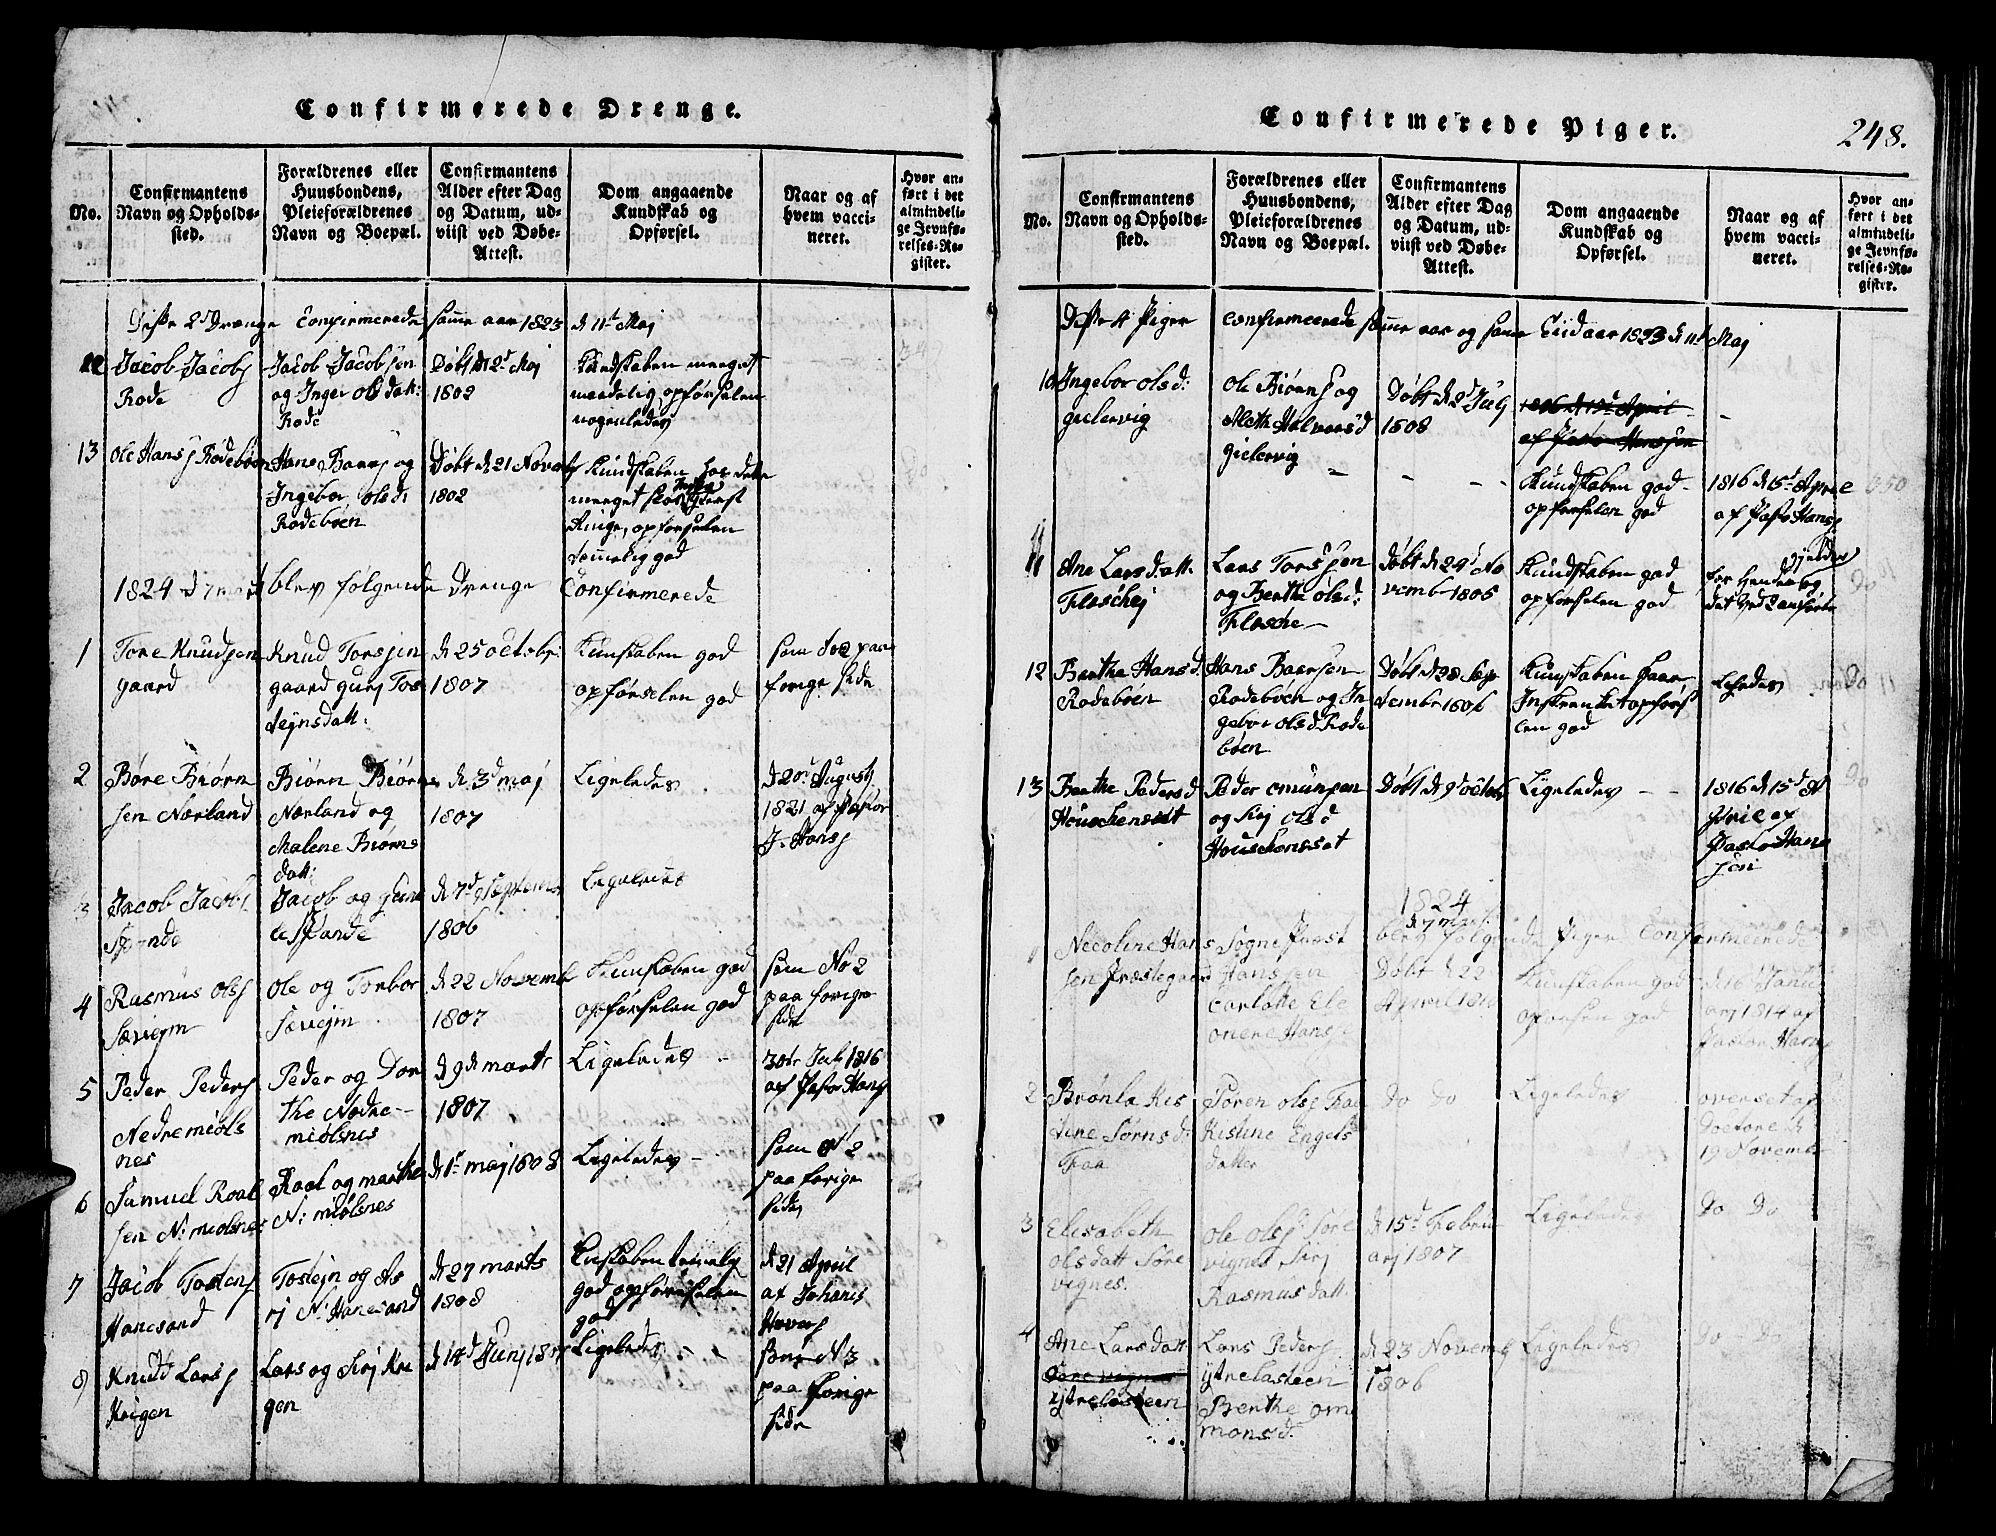 Confirmerede Drenge.
No.
Confirmantens
Navn og Opholds-
sted.
Forældrenes eller
Huusbondens,
Pleieforældrenes
Navn og Boepæl.
Confirmantens
Alder efter Dag
og Datum, ud-
viist ved Døbe-
Attest.
Dom angaaende
Kundskab og
Opførsel.
Naar og af
hvem vacci-
neret.
Hvor an-
ført i det
almindeli-
ge Jevnfø-
relses-Re-
gister.
Disse 2 Drenge Confirmerede samme aar 1823 d 11t Maj
12
Jacob Jacobs
Rode
Jacob Jacobsen
og Inger olsdatt:
Rode
Døbt d 2d Maj
1802
Kundskaben meeget
maadelig opførselen
nogenledes
13
Ole Hans Rodebøen
Hans Baars og
Ingebor olsd:
Rodebøen
Døbt d 21 Novembr
1802
Kundskaben har dette
meeget
Ringe, opførselen
temmelig god
1824 d 7 mart blev følgende Drenge Confirmerede
1
Tore Knudsen
gaard
Knud Torsjen
gaard gurj Tos
tejnsdatt:
d 25 octobr:
1807
Kunskaben god
opførselen god
som No 2 paa
forige side
2
Børe Biørn
sen Nærland
Biørn Biørns
Nærland og
Malene Biørns
datt:
d 3d maj
1807
Ligeledes
d 20d Augusti
1821 af Pastor
J. Hans
3
Jacob Jacobs
Spande
Jacob og Gun
Spande
d 7d Septembr
1806
Ligeledes
4
Rasmus ols
Sævejm
Ole og Torbor
Sævejm
d 22 Novemb
1807
Kunskaben god
opførselen god
som No 2
paa forige
side
5
Peder Peders
Nedremiøls
nes
Peder og Dor
the Nedre-
miølsnes
d 9d marts
1807
Ligeledes
30te Juli 1816
af Pastor Hans
6
Samuel Roal
sen N: miølsnes
Roal og marthe
N: miølsnes
d 1t maj 1808
Ligeledes
som No 2
paa forige
side
7
Jacob Tostens
Hanesand
Tostejn og As
rj N: Hanesand
d 27 marts
1808
Kunskaben temmelig
god opførselen
god
d 21 April
af Johanes
8
Knud Lars
Krigen
Lars og Sirj Kri
gen
d 14d Junj 1807
Ligeledes
som No 3
paa forige
side
Confirmerede Piger.
248.
No.
Confirmantens
Navn og Opholds-
sted.
Forældrenes eller
Huusbondens,
Pleieforældrenes
Navn og Boepæl.
Confirmantens
Alder efter Dag
og Datum, ud-
viist ved Døbe-
Attest.
Dom angaaende
Kundskab og
Opførsel.
Naar og af
hvem vacci-
neret.
Hvor an-
ført i det
almindeli-
ge Jevnfø-
relses-Re-
gister.
Disse 4 Piger confirmeerede samme aar og samme Tiid aar 1823 d 11t Maj
10
Ingebor olsd:
gielervig
Ole Biørns og
Aleth Halvorsd
gielervig
Døbt d 2d Julj
1808
1816 d 15d April
af Pastor Hansen
Kundskaben god
opførselen god
1816 d 15d Aprile
af Pastor Hans
350
11
Ane Larsdatt:
Floschej
Lars Torsjen
og Berthe olsd:
Flosche
Døbt d 29d No
vembr 1806
Kundskaben god
opførselen god
for Hende og
do
12
Berthe Hansd
Rodebøen
Hans Baarsen
Rodebøen og In
gebor olsd Rode
bøen
Døbt d 28 Sep
tembr 1806
Kundskaben haar
Inskrenket opførs
len god
Ligeledes
do
13
Berthe Pedersd
Houschensøt
Peder omunsen
og Sirj olsd
Houschenssøt
Døbt d 9d octobr
Ligeledes
1816 d 15d A
prile af
Pastor Hans
sen
do
1824
d 7 marts
blev følgende Piger Confirmeerede
1
Necoline Hans
sen Præstegaard
Sogne Præst
Hansen
Carlotte Ele
onere Hans
Døbt d 22
April 1810
Kunskaben god
opførsen god
d 16d Janu
arj 1814 af
Pastor Hans
2
Brønla Kis
tine Sørnsd:
Traa
Søren ols Traa
Kistine Engels
datter
do do
Ligeledes
overset af
Doctore d
19 Novembr
3
Elisabeth
olsdatt Søre
vignes.
Ole ols Søre
vignes Sirj
Rasmusdatt.
d 15d Febru
arj 1807
Ligeledes
Do Do
4
Ane Larsdatt
Sørevignes
ijtrelasteen
Lars Peders
ijtrelasteen
Berthe om
monsd.
d 23 Novemb
1806
Ligeledes
Do